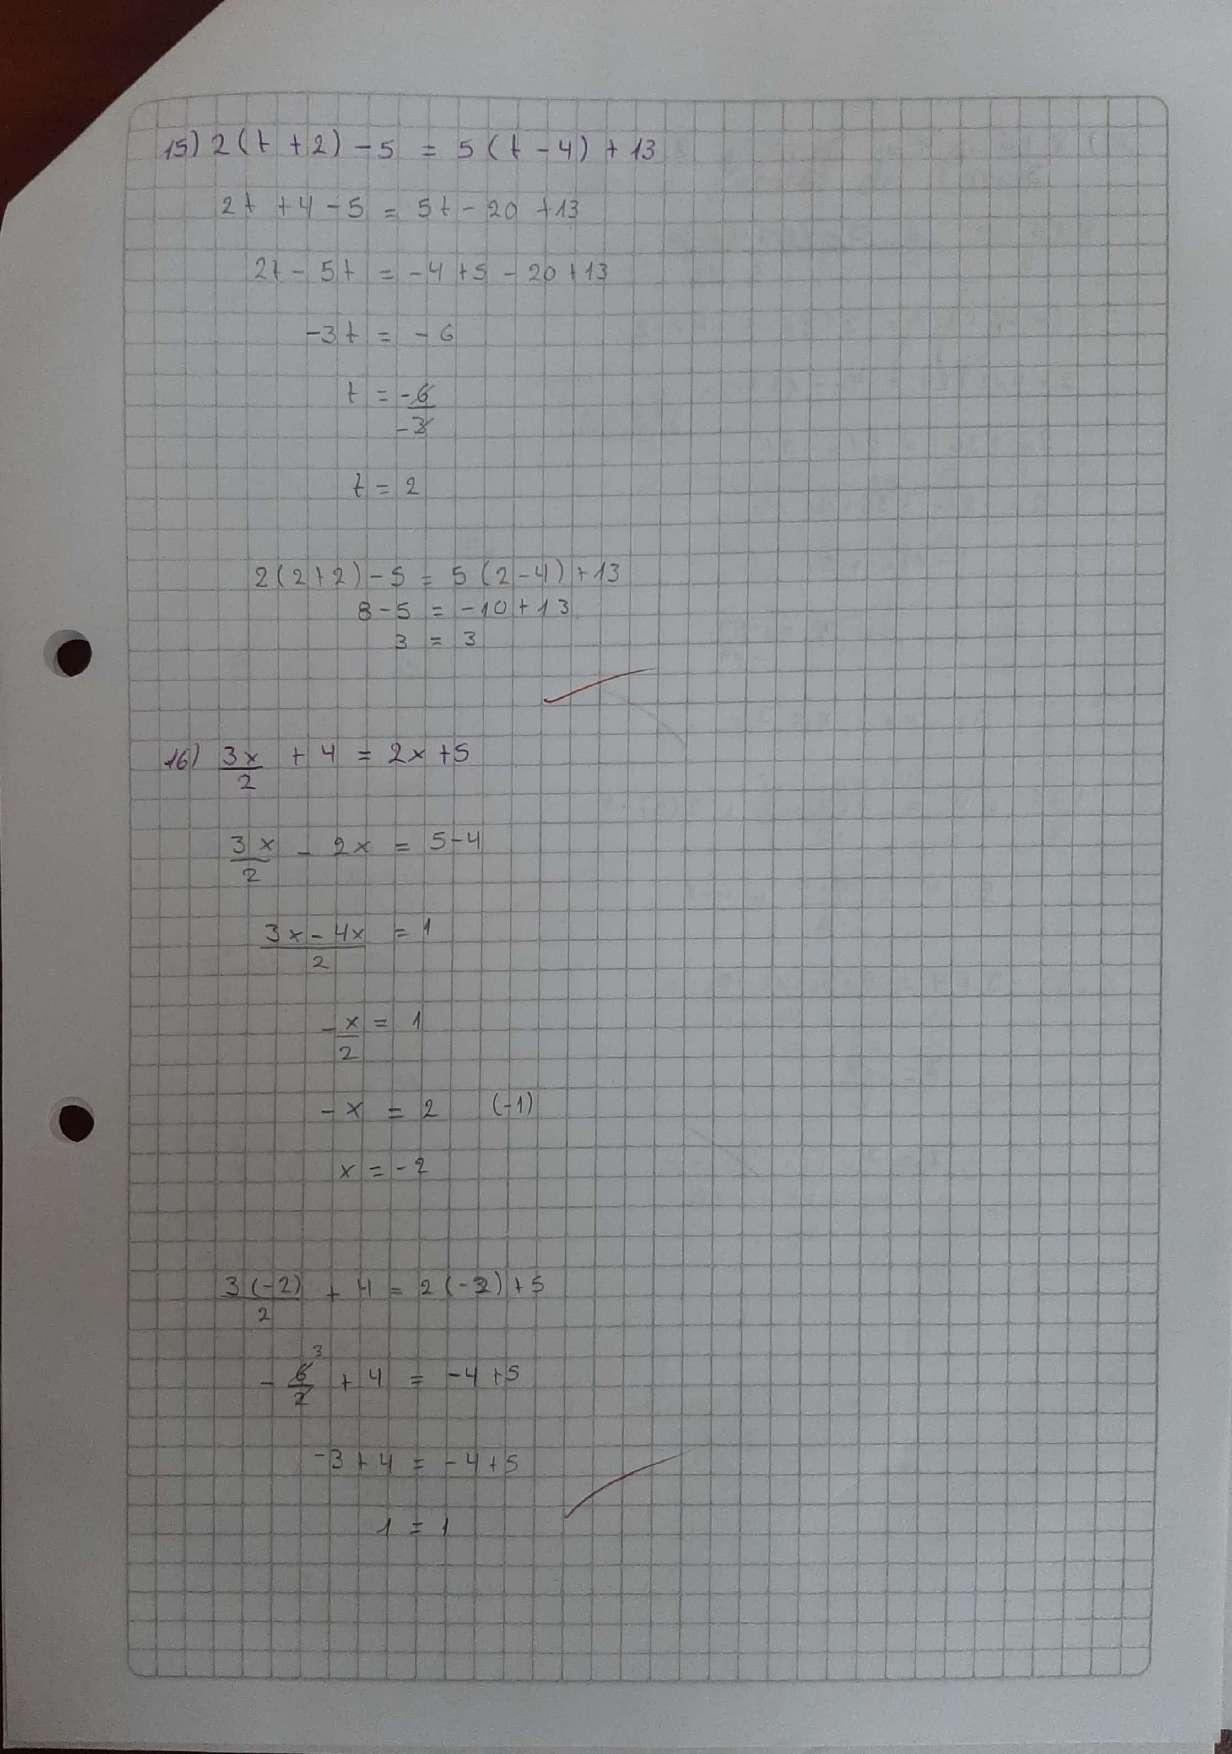 15) 2(t+2)-5 = 5(t-4)+13
2t+4-5 = 5t-20+13
2t-5t = -4+5-20+13
-3t = -6
t = -6/-3
t = 2
2(2+2)-5 = 5(2-4)+13
8-5 = -10+13
3 = 3
16) 3x/2 + 4 = 2x+5
3x/2 - 2x = 5-4
3x-4x/2 = 1
-x/2 = 1
-x = 2 (-1)
x = -2
3(-2)/2 + 4 = 2(-2)+5
-6/2 3 + 4 = -4+5
-3+4 = -4+5
1 = 1